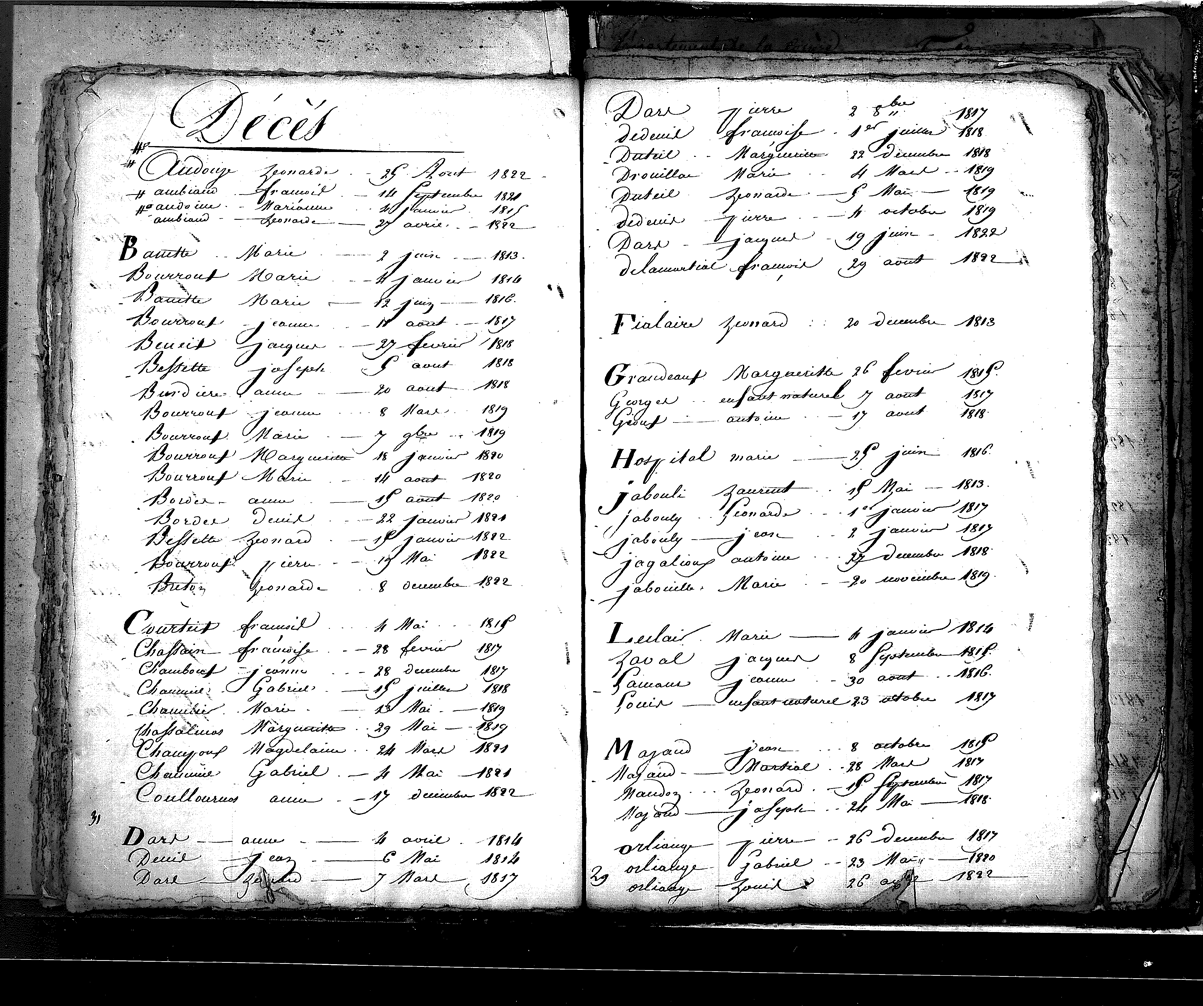 Décès
Audouze Leonarde 25 Aout 1822
ambiaud françois 14 Septembre 1821
audoine Marianne 4 janvier 1815
ambiaud Leonarde 27 avril 1822
Banette Marie 2 juin 1813
Bourrout Marie 4 janvier 1814
Banette Marie 12 juin 1816
Bourrout jeanne 11 aout 1817
Benoit jacques 27 fevrier 1818
Bessette joseph 5 aout 1818
Burdiere anne 20 aout 1818
Bourrout jeanne 8 Mars 1819
Bourrout Marie 7 9bre 1819
Bourrout Margueritte 18 janvier 1820
Bourrout Marie 14 aout 1820
Bordes anne 15 aout 1820
Bordes denis 22 janvier 1821
Bessette Leonard 15 janvier 1822
Bourrout pierre 15 Mai 1822
Breton Leonarde 8 decembre 1822
Courteix françois 4 Mai 1815
Chassain françoise 28 fevrier 1817
Chambout jeanne 28 decembre 1817
Chaumie Gabriel 15 juillet 1818
Chaumie Marie 13 Mai 1819
Chassalinos Margueritte 29 Mai 1819
Champoux Magdelaine 24 Mars 1821
Chaumie Gabriel 4 Mai 1821
Coullournos anne 17 decembre 1822
31
Dars anne 4 avril 1814
Deneil jean 6 Mai 1814
Dars 7 Mars 1817
Dars pierre 2 8bre 1817
dedeneil françoise 1er juillet 1818
Duteil Margueritte 22 decembre 1818
Drouillas Marie 4 Mars 1819
Duteil Leonarde 5 Mai 1819
dedeneil pierre 4 octobre 1819
Dars jacques 19 juin 1822
delamartial françois 29 aout 1822
Fialaire Leonard 20 decembre 1813
Grandeaux Margueritte 26 fevrier 1815
Georges enfant naturel 7 aout 1817
Groux antoine 17 aout 1818
Hospital marie 25 juin 1816
jabouli Laurent 15 Mai 1813
jabouly Leonarde 1er janvier 1817
jabouly jean 2 janvier 1817
jagalioux antoine 27 decembre 1818
jabouille Marie 20 novembre 1819
Leclair Marie 4 janvier 1814
Laval jacques 8 Septembre 1815
Lamaux jeanne 30 aout 1816
Louis enfant naturel 23 octobre 1817
Mazaud jean 8 octobre 1815
Mazaud Martial 28 Mars 1817
Naudon Leonard 15 Septembre 1817
Mazaud joseph 24 Mai 1818
orliange pierre 26 decembre 1817
orliange gabriel 23 Mai 1820
29 orliange Louis 26 1822